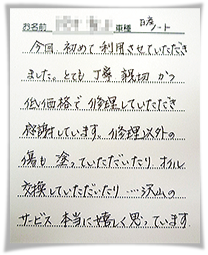 お名前 車種 日産ノート
今回 初めて利用させていただき
ました。とても丁寧 親切 かつ
低価格で修理していただき
感謝しています。修理以外の
傷も塗っていただいたり オイル
交換していただいたり…沢山の
サービス 本当に嬉しく思っています